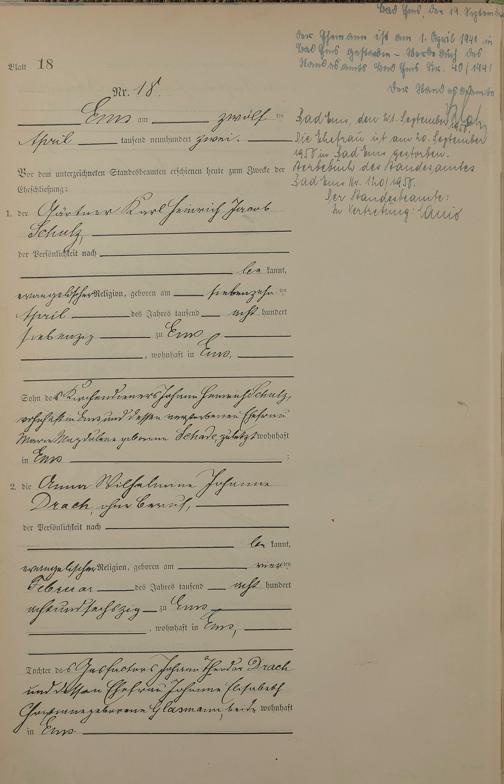 Bad Ems, den 19. September
der Ehemann ist am 1. April 1941 in
Bad Ems gestorben – Sterbebuch des
Standesamts Bad Ems Nr. 40/1941
Der Standesbeamte
Blatt 18
Nr. 18.
Ems am zwölf ten
April tausend neunhundert zwei.
Bad Ems, den 21. September 1958.
Die Ehefrau ist am 20. September
1958 in Bad Ems gestorben.
Sterbebuch des Standesamtes
Bad Ems Nr. 120/1958.
Der Standesbeamte:
In Vertretung:
Vor dem unterzeichneten Standesbeamten erschienen heute zum Zwecke der
Eheschließung:
1. der Gärtner Karl Heinrich Jacob
Schulz,
der Persönlichkeit nach
be kannt,
evangelischer Religion, geboren am siebenzehn ten
April des Jahres tausend acht hundert
siebenzig zu Ems
, wohnhaft in Ems,
Sohn des Kirchendieners Johann Heinrich Schulz,
wohnhaft in Ems und dessen verstorbenen Ehefrau
Maria Magdalene geborene Schade, zuletzt wohnhaft
in Ems ;
2. die Anna Wilhelmine Johanne
Drach, ohne Beruf,
der Persönlichkeit nach
be kannt,
evangelischer Religion, geboren am vier ten
Februar des Jahres tausend acht hundert
achtundsechszig zu Ems
, wohnhaft in Ems,
Tochter des Johann Theodor Drach
und dessen Ehefrau Johanne Elisabeth
geborene Glasmann, beide wohnhaft
in Ems.